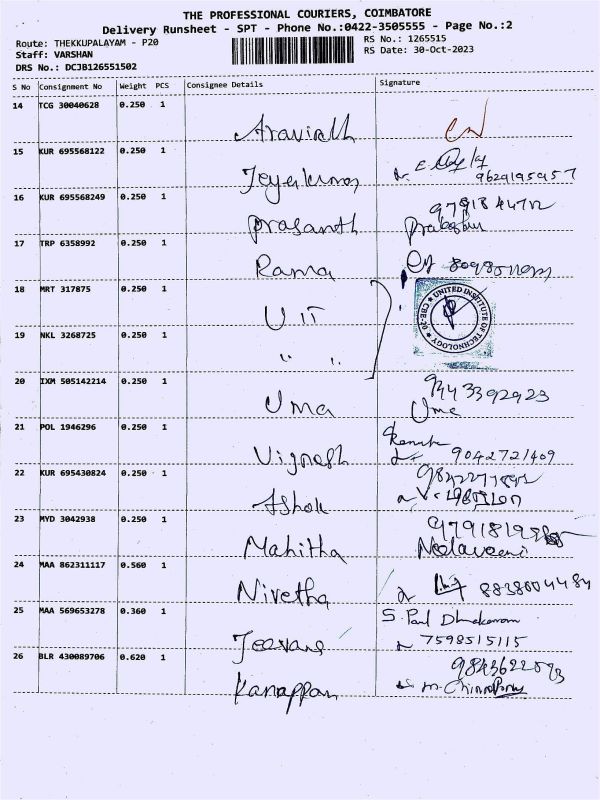 THE PROFESSIONAL COURIERS, COIMBATORE
Delivery Runsheet - SPT - Phone No.:0422-3505555 - Page No.:2
Route: THEKKUPALAYAM - P20
RS No.: 1265515
Staff: VARSHAN
RS Date: 30-Oct-2023
DRS No.: DCJB126551502
S No Consignment No Weight PCS Consignee Details Signature
14 TCG 30040628 0.250 1
Aravinth
15 KUR 695568122 0.250 1
Jeyakumar 9629195957
16 KUR 695568249 0.250 1
Prasanth
17 TRP 6358992 0.250 1
Rama
18 MRT 317875 0.250 1
UIT
UNITED INSTITUTE OF TECHNOLOGY
CBE-20
19 NKL 3268725 0.250 1
" "
20 IXM 505142214 0.250 1
9443392923
Uma Uma
21 POL 1946296 0.250 1
Vignesh 9042721409
22 KUR 695430824 0.250 1
Ashok
23 MYD 3042938 0.250 1
Mahitha Neelaveni
24 MAA 862311117 0.560 1
Nivetha 8838004484
25 MAA 569653278 0.360 1
S. Paul Dhinakaran
Jeevan 7598515115
26 BLR 430089706 0.620 1
Kanappan